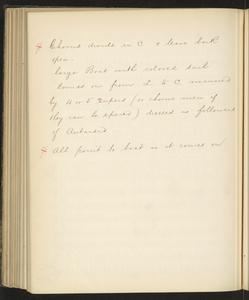 Chorus divide in C & leave back
open.
large Boat with colored sail
comes on from L to C manned
by 4 or 5 Supers (or chorus men if
they can be spared) dressed as followers
of
All point to boat as it comes on